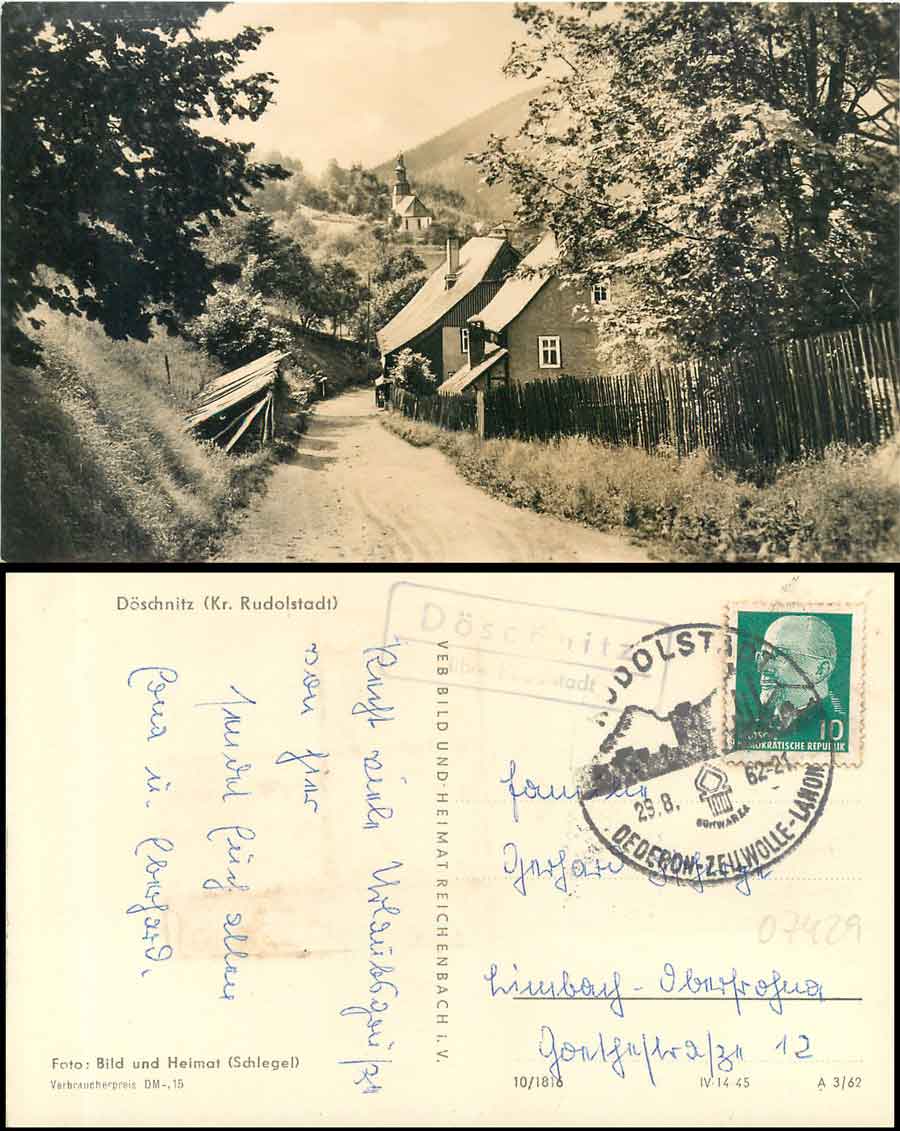 Döschnitz (Kr. Rudolstadt)
Döschnitz
über Rudolstadt
Recht viele Urlaubsgrüße
von hier
sendet Euch allen
Lona u. Eberhard.
VEB BILD UND HEIMAT REICHENBACH i. V.
RUDOLSTADT
29.8.
62-21
SCHWARZA
DEDERON-ZELLWOLLE-LANON
10
DEMOKRATISCHE REPUBLIK
Familie
Gerhard
Limbach-Oberfrohna
Goethestraße 12
07429
Foto: Bild und Heimat (Schlegel)
Verbraucherpreis DM-,15
10/1816
IV-14-45
A 3/62